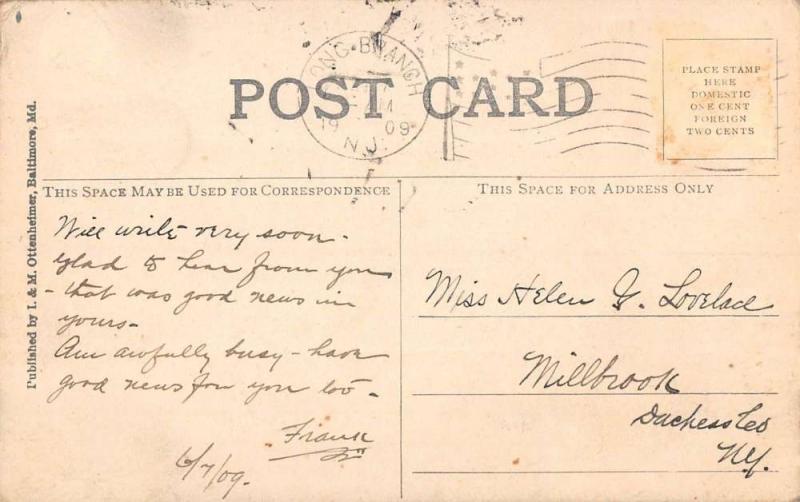 LONG BRANCH
AM
19 09
N.J.
POST CARD
PLACE STAMP
HERE
DOMESTIC
ONE CENT
FOREIGN
TWO CENTS
Published by I. & M. Ottenheimer, Baltimore, Md.
THIS SPACE MAY BE USED FOR CORRESPONDENCE
THIS SPACE FOR ADDRESS ONLY
Will write very soon -
Glad to hear from you
- that was good news in
yours -
Am awfully busy - have
good news for you too -
Frank
6/7/09.
Miss Helen G. Lovelace
Millbrook
Duchess Co
N.Y.